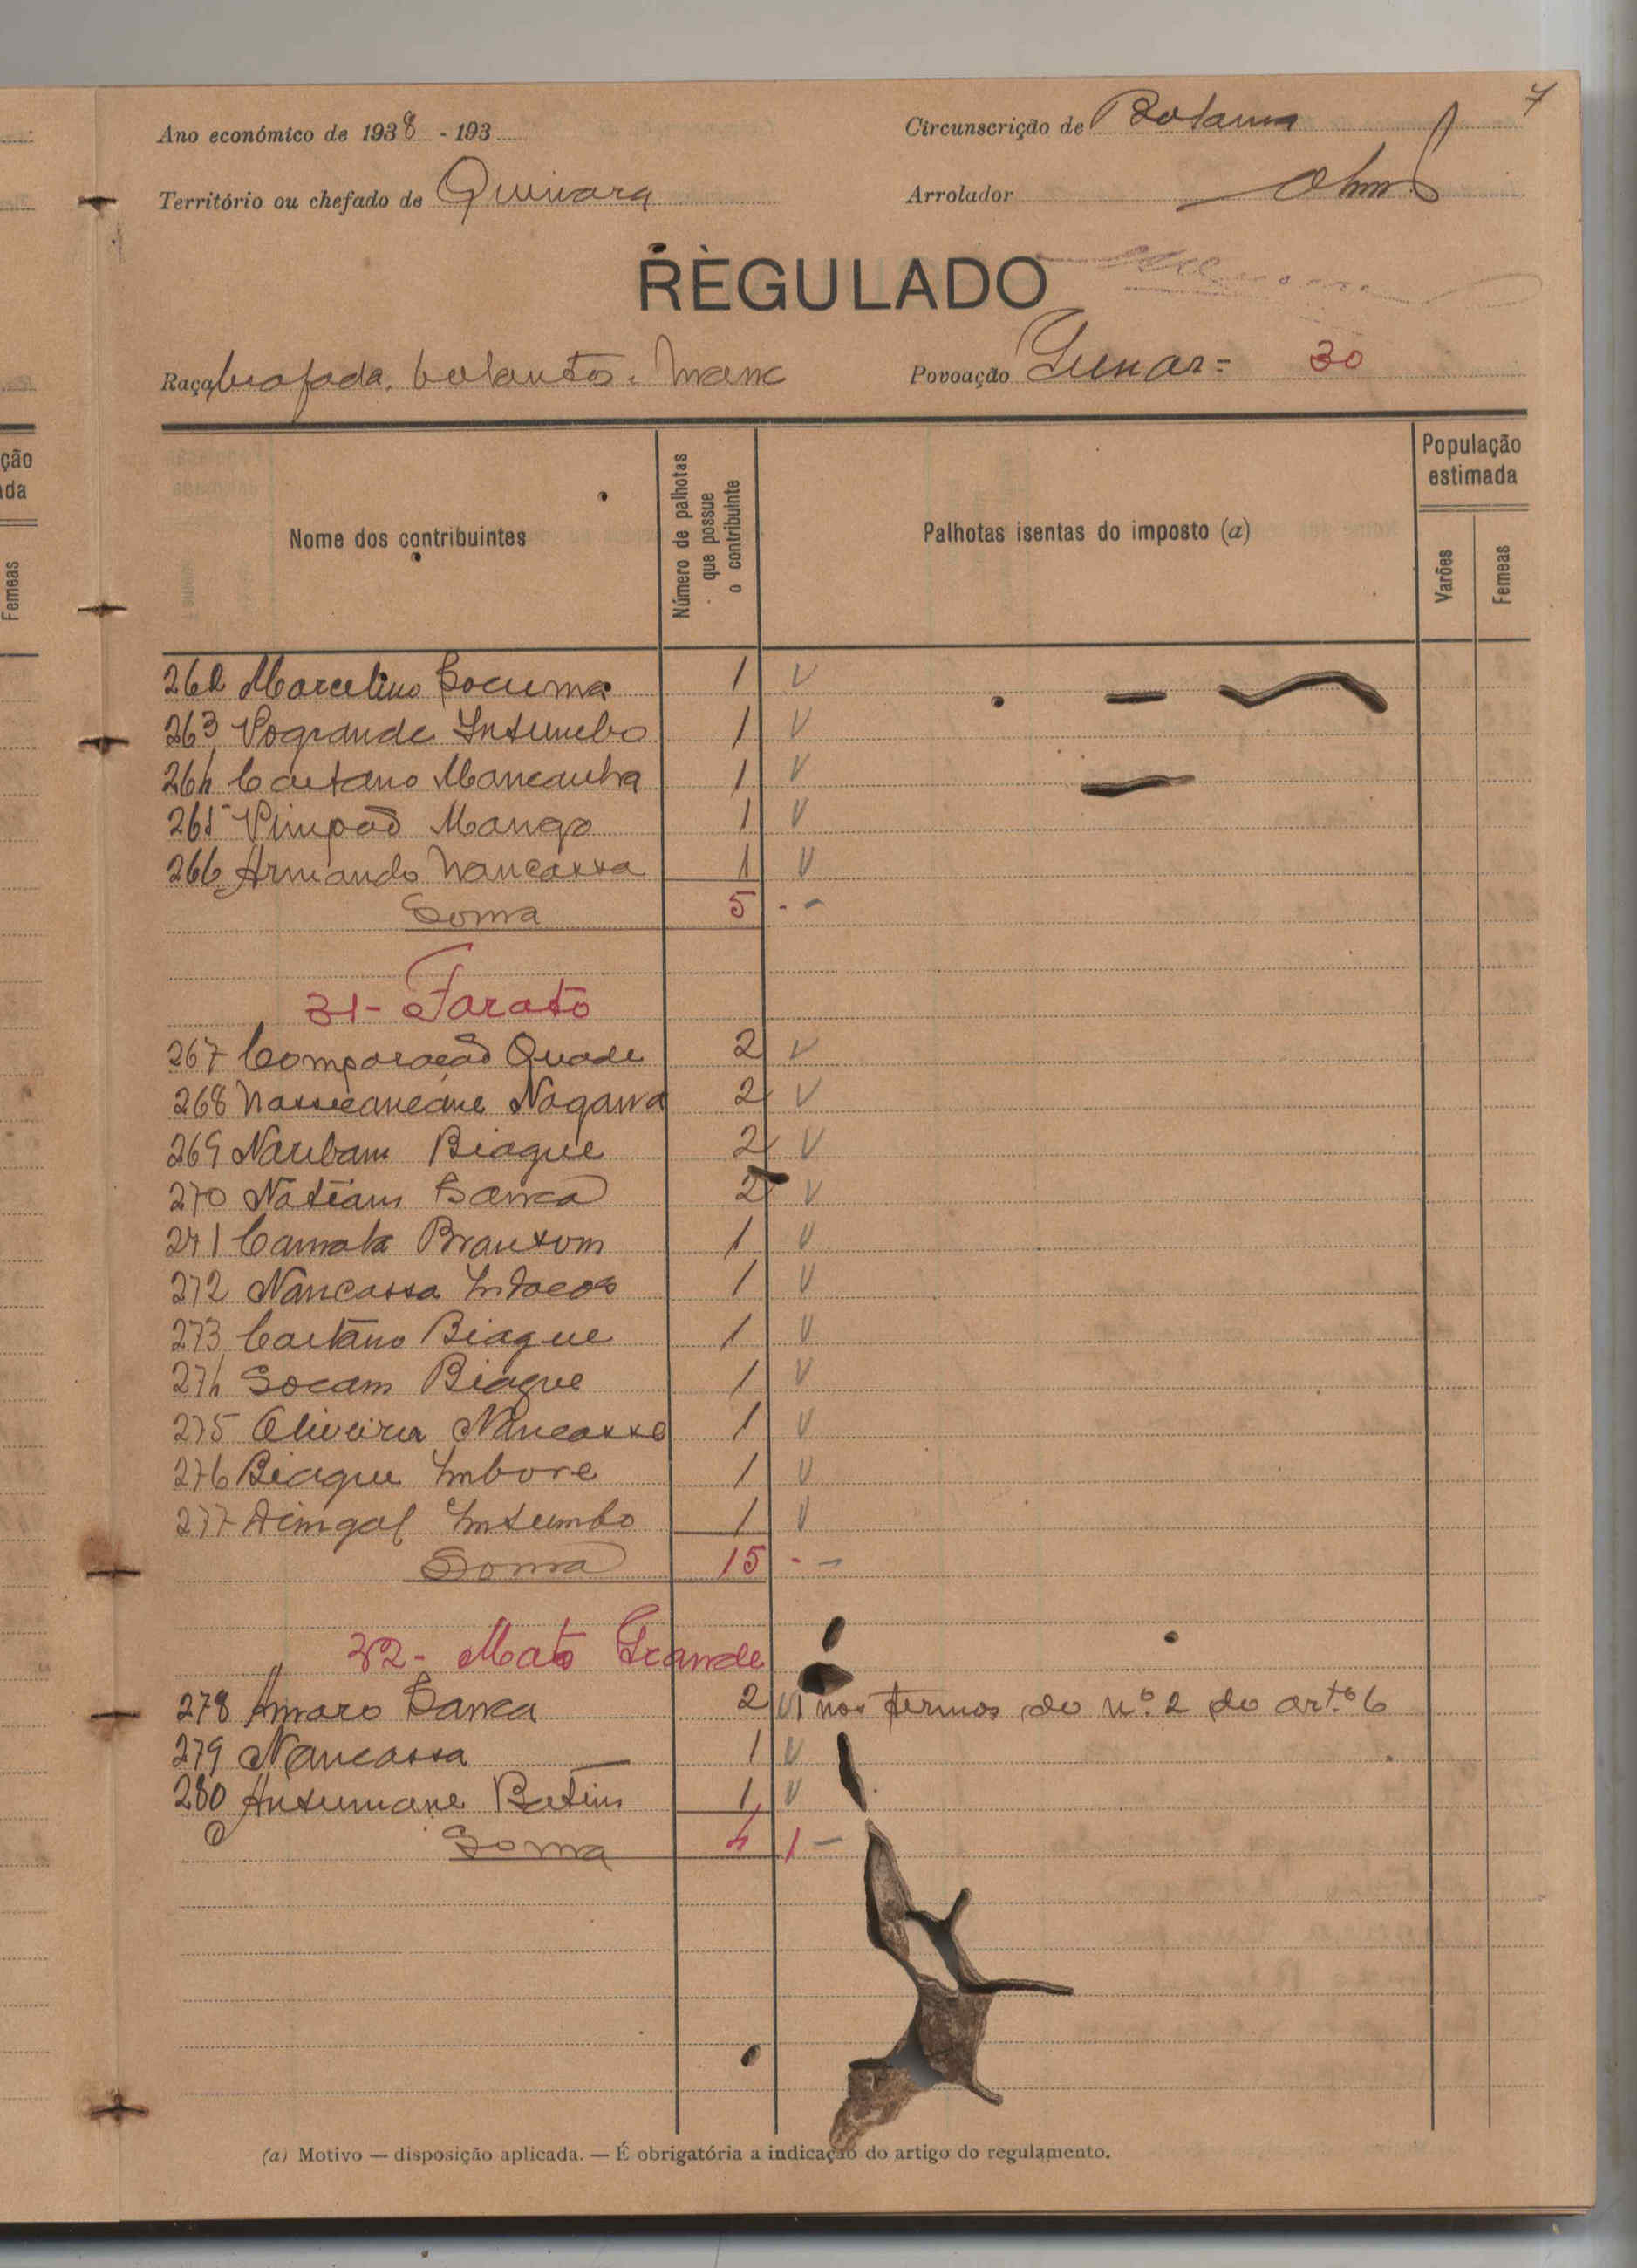 7
Ano económico de 1938 - 193
Circunscrição de Bolama
Território ou chefado de Quinara
Arrolador
REGULADO
Raça biafada, balantos, manc
Povoação Gunar = 30
Nome dos contribuintes
Número de palhotas que possue o contribuinte
Palhotas isentas do imposto (a)
População estimada
Varões
Femeas
262 Marcelino Socuma 1 V
263 Vogrande Insumbo 1 V
264 Caetano Mancanha 1 V
265 Pimpão Mango 1 V
266 Armando Nancassa 1 V
Soma 5 - -
31 - Farato
267 Comparação Quade 2 V
268 Nogawa 2 V
269 Naubam Biague 2 V
270 Natiam Sanca 2 V
271 Camata 1 V
272 Nancassa 1 V
273 Caetano Biague 1 V
274 Socam Biague 1 V
275 Oliveira Nancassa 1 V
276 Biague Imbore 1 V
277 Dingal Insumbo 1 V
Soma 15 - -
32 - Mato Grande
278 Amaro Sanca 2 V 1 nos termos do nº 2 do artº 6
279 Nancassa 1 V
280 Ansumane Batim 1 V
Soma 4 1 -
(a) Motivo — disposição aplicada. — É obrigatória a indicação do artigo do regulamento.
ção
da
Femeas